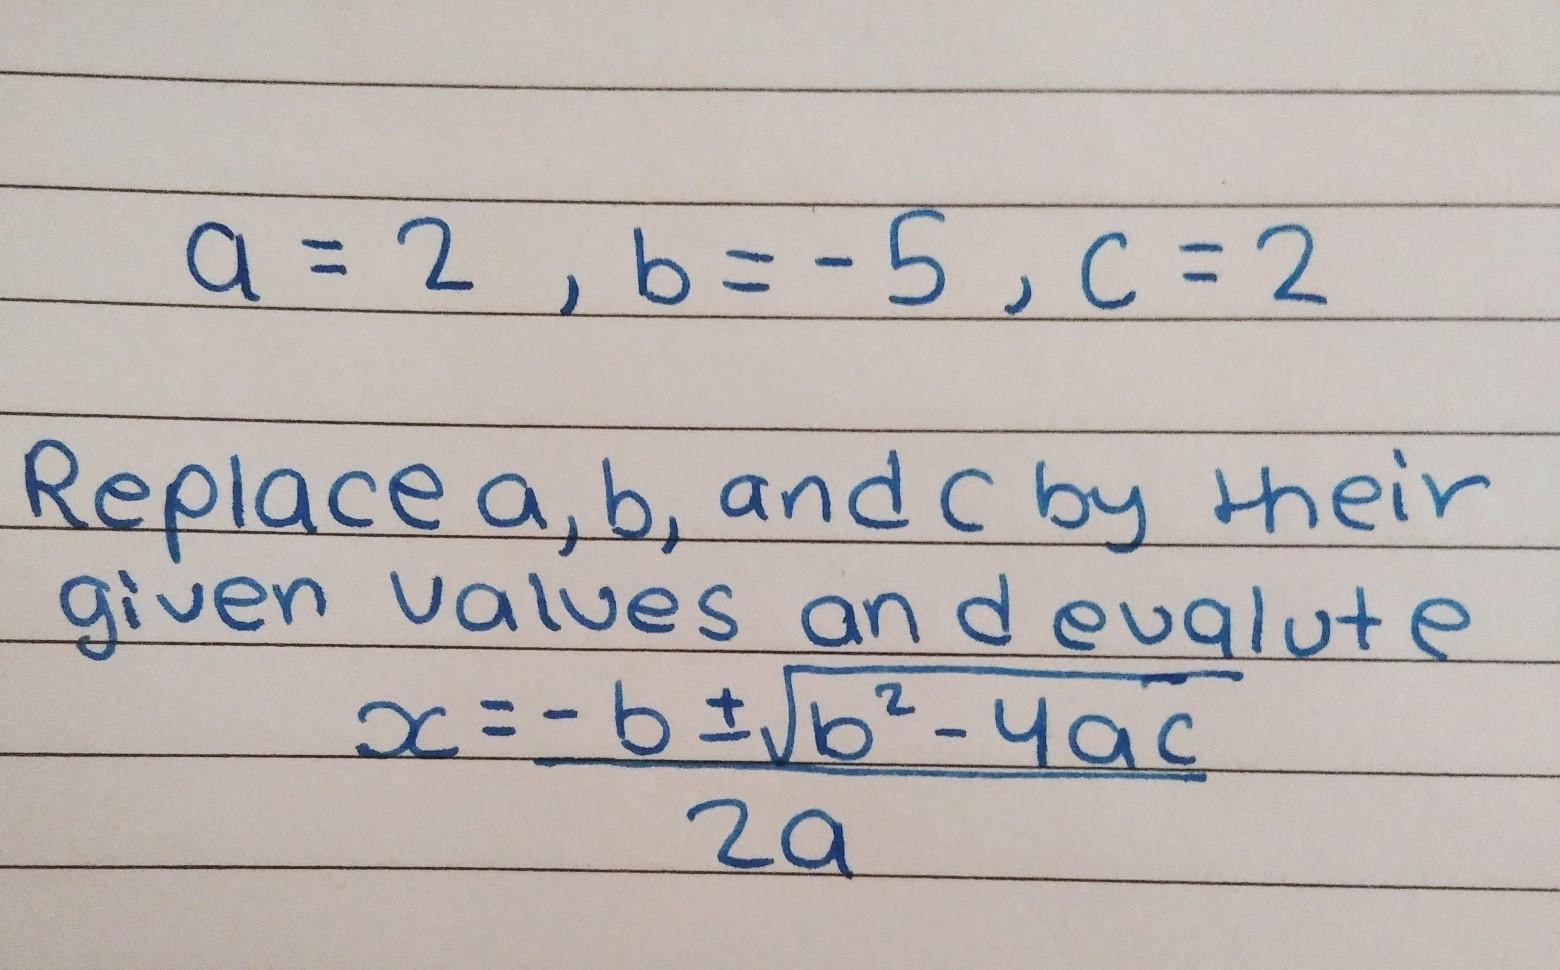 a = 2 , b = -5 , c = 2
Replace a, b, and c by their
given values and evalute
x = -b ± √b² - 4ac
2a